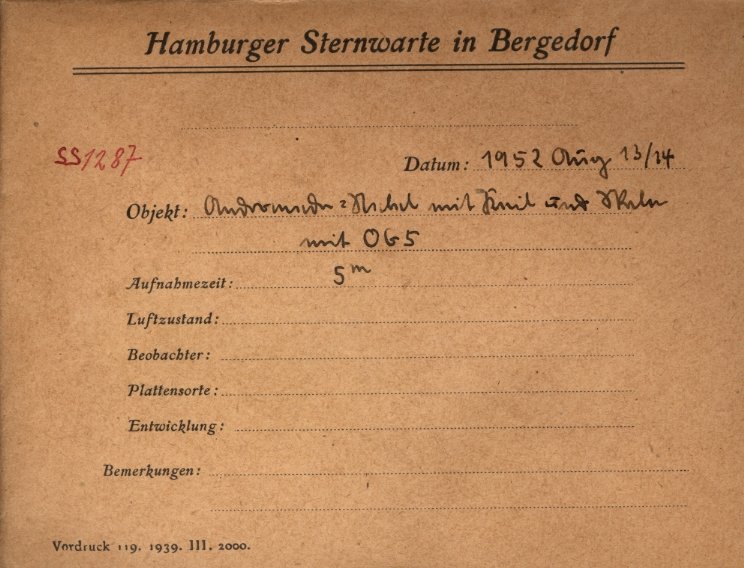 Hamburger Sternwarte in Bergedorf
SS1287
Datum: 1952 Aug 13/14
Objekt: Andromeda=Nebel mit Keil und Skala
mit OG5
Aufnahmezeit: 5m
Luftzustand:
Beobachter:
Plattensorte:
Entwicklung:
Bemerkungen:
Vordruck 119. 1939. III. 2000.